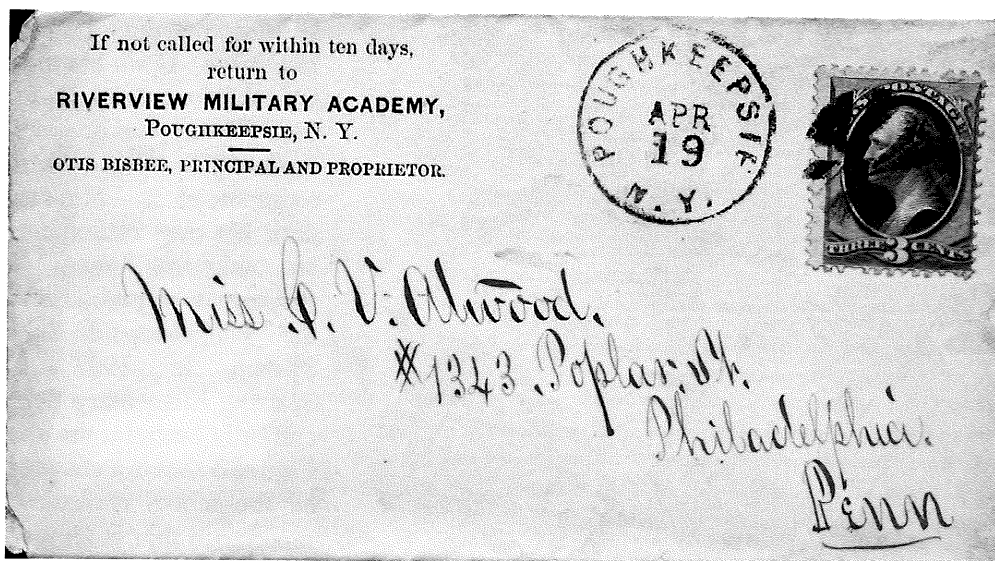 If not called for within ten days,
return to
RIVERVIEW MILITARY ACADEMY,
POUGHKEEPSIE, N. Y.
OTIS BISBEE, PRINCIPAL AND PROPRIETOR.
POUGHKEEPSIE
APR
19
N. Y.
POSTAGE
THREE 3 CENTS
Miss C. V. Atwood.
#1343. Poplar. St.
Philadelphia.
Penn